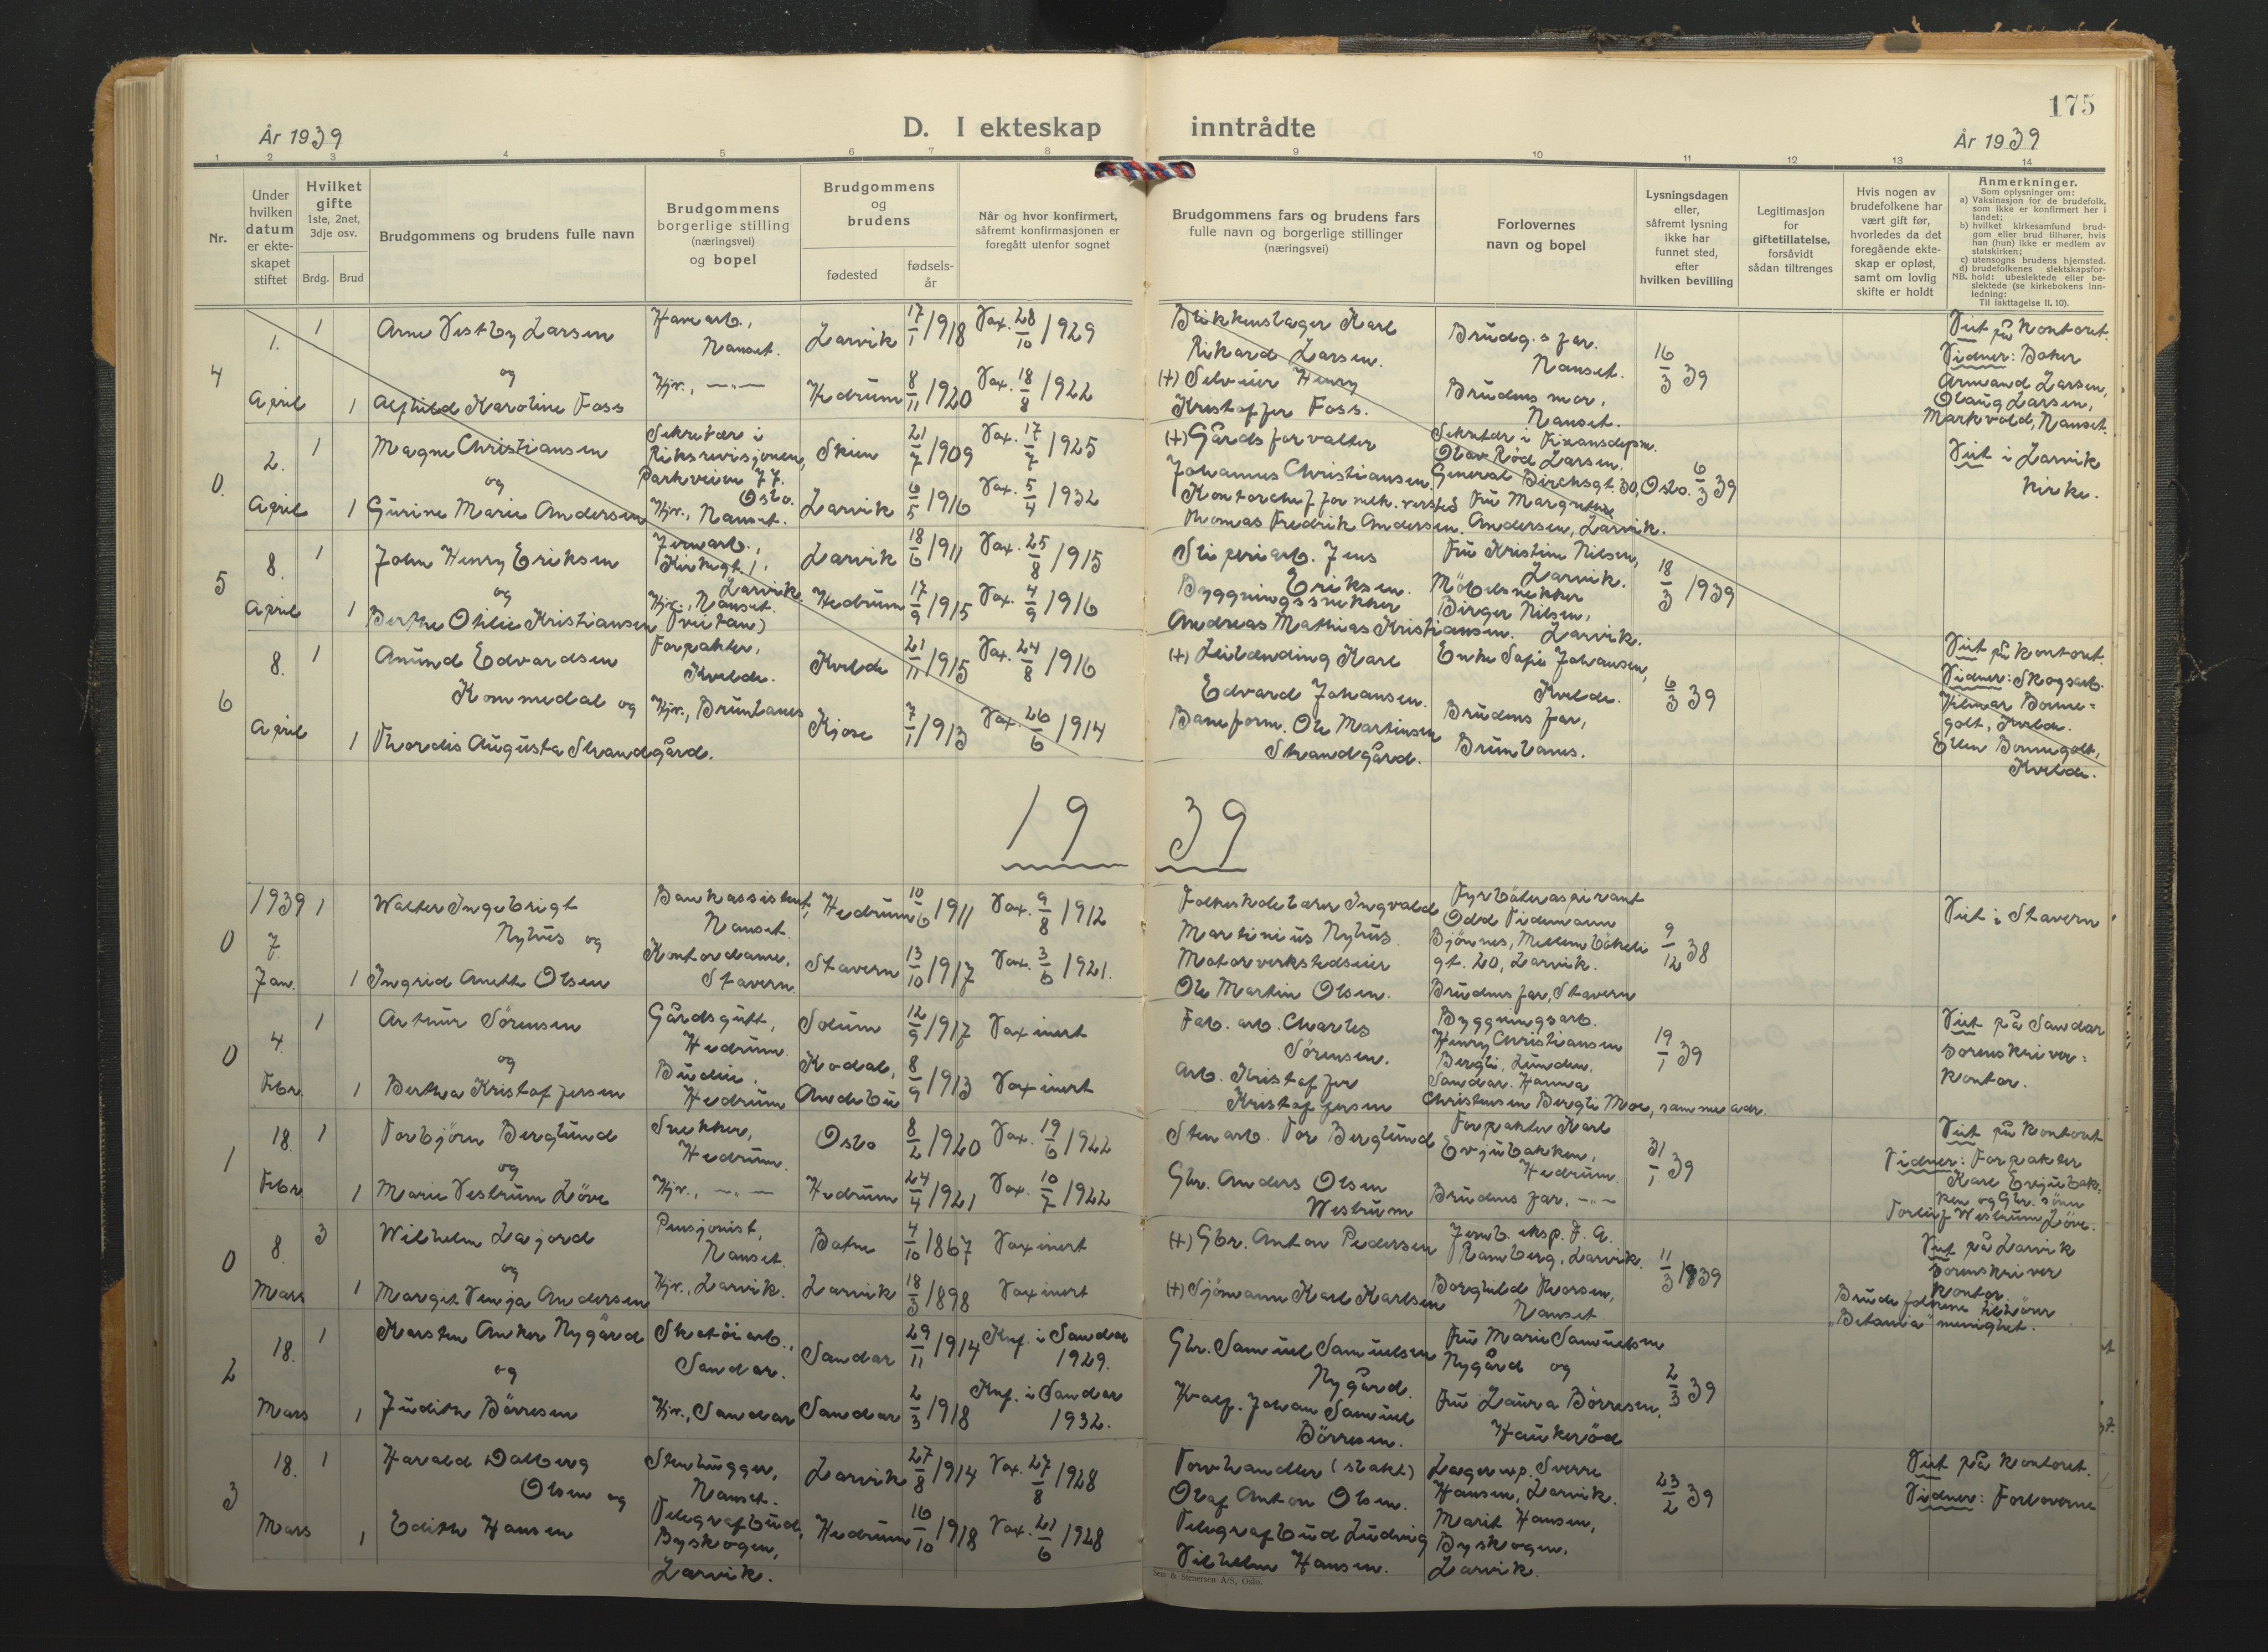 175
År 1939
D. I ekteskap inntrådte
År 1939
1 2 3 4 5 6 7 8 9 10 11 12 13 14
Nr.
Under
hvilken
datum
er ekte-
skapet
stiftet
Hvilket
gifte
1ste, 2net,
3dje osv.
Brdg. Brud
Brudgommens og brudens fulle navn
Brudgommens
borgerlige stilling
(næringsvei)
og bopel
Brudgommens
og
brudens
fødested
fødsels-
år
Når og hvor konfirmert,
såfremt konfirmasjonen er
foregått utenfor sognet
Brudgommens fars og brudens fars
fulle navn og borgerlige stillinger
(næringsvei)
Forlovernes
navn og bopel
Lysningsdagen
eller,
såfremt lysning
ikke har
funnet sted,
efter
hvilken bevilling
Legitimasjon
for
giftetillatelse,
forsåvidt
sådan tiltrenges
Hvis nogen av
brudefolkene har
vært gift før,
hvorledes da det
foregående ekte-
skap er opløst,
samt om lovlig
skifte er holdt
Anmerkninger.
Som oplysninger om:
a) Vaksinasjon for de brudefolk,
som ikke er konfirmert her i
landet;
b) hvilket kirkesamfund brud-
gom eller brud tilhører, hvis
han (hun) ikke er medlem av
statskirken;
c) utensogns brudens hjemsted.
d) brudefolkenes slektskapsfor-
NB. hold: ubeslektede eller be-
slektede (se kirkebokens inn-
ledning:
Til iakttagelse II. 10).
4
1.
April
1
1
Arne Vestby Larsen
og
Alfhild Karoline Foss
Havearb.,
Nanset.
Hjv., —"—
Larvik 17/1 1918 Vax. 28/10 1929
Hedrum 8/11 1920 Vax. 18/8 1922
Blikkenslager Karl
Rikard Larsen.
(+) Selveier Henry
Kristoffer Foss.
Brudg.s far.
Nanset.
Brudens mor,
Nanset.
16/3 39
Viet på kontoret.
Vidner: Baker
Armand Larsen,
Olaug Larsen,
Markvold, Nanset.
0.
2.
April
1
1
Magne Christiansen
og
Gurine Marie Andersen
Sekretær i
Riksrevisjonen,
Parkveien 77.
Oslo.
Hjv., Nanset.
Skien 21/7 1909 Vax. 17/7 1925
Larvik 6/5 1916 Vax. 5/4 1932
(+) Gårdsforvalter
Johannes Christiansen.
Kontorchef for mek. versted
Thomas Fredrik Andersen.
Sekretær i Finansdepm.
Olav Rød Larsen.
General Birchsgt. 30, Oslo.
Fru Margrethe
Andersen, Larvik.
6/3 39
Viet i Larvik
kirke.
5
8.
April
1
1
John Henry Eriksen
og
Berthe Otilie Kristiansen
Jernarb.,
Kirkegt. 1,
Larvik.
Hjv., Nanset.
Larvik 18/6 1911 Vax. 25/8 1915
Hedrum 17/9 1915 Vax. 4/9 1916
Sliperiarb. Jens
Eriksen.
Byggningssnekker
Andreas Mathias Kristiansen.
Fru Kristine Nilsen,
Larvik.
Möbelsnekker
Birger Nilsen,
Larvik.
18/3 1939
6
8.
April
1
1
Amund Edvardsen
Kommedal og
Thordis Augusta Strandgård.
Forpakter,
Kvelde.
Hjv., Brunlanes
Kvelde 21/11 1915 Vax. 24/8 1916
Kjose 7/1 1913 Vax. 26/6 1914
(+) Leilending Karl
Edvard Johansen.
Baneform. Ole Martinsen
Strandgård.
Enke Sofie Johansen,
Kvelde.
Brudens far,
Brunlanes.
6/3 39
Viet på kontoret.
Vidner: Skogsarb.
Hilmar Bonne=
golt, Kvelde.
Ellen Bonnegolt,
Kvelde.
1939
0
1939
7.
Jan.
1
1
Walter Ingebrigt
Nyhus og
Ingrid Anette Olsen
Bankassistent,
Nanset.
Kontordame,
Stavern.
Hedrum 10/6 1911 Vax. 9/8 1912
Stavern 13/10 1917 Vax. 3/6 1921.
Folkeskolelærer Ingvald
Martinius Nyhus.
Motorverkstedseier
Ole Martin Olsen.
Fyrbøteraspirant
Odd Tidemann
Bjönnes, Mellembökeli
gt. 20, Larvik.
Brudens far, Stavern
9/12 38
Viet i Stavern
0
4.
Febr.
1
1
Arthur Sörensen
og
Bertha Kristoffersen
Gårdsgutt,
Hedrum.
Budeie,
Hedrum
Solum 12/9 1917 Vaxinert
Kodal,
Andebu 8/9 1913 Vaxinert
Fab. arb. Charles
Sörensen.
Arb. Kristoffer
Kristoffersen
Byggningsarb.
Henry Christiansen
Bergli, Lunden,
Sandar. Hanna
Christensen Bergli Moe, samme adr.
19/1 39
Viet på Sandar
sorenskriver=
kontor.
1
18.
Febr.
1
1
Torbjörn Berglund
og
Marie Vestrum Löve
Snekker,
Hedrum.
Hjv., —"—
Oslo 8/2 1920 Vax. 19/6 1922
Hedrum 24/4 1921 Vax. 10/7 1922
Stenarb. Tor Berglund
Gbr. Anders Olsen
Westrum
Forpakter Karl
Evjubakken,
Hedrum.
Brudens far, —"—
31/1 39
Viet på kontoret
Vidner: Forpakter
Karl Evjubak=
ken og Gbr. sönn
Torleif Westrum Löve.
0
8.
Mars
3
1
Wilhelm Lajord
og
Margit Venja Andersen
Pensjonist,
Nanset.
Hjv., Larvik.
Batne 4/10 1867 Vaxinert
Larvik 18/3 1898 Vaxinert
(+) Gbr. Anton Pedersen
(+) Sjömann Karl Karlsen
Jernb. eksp. F. A.
Ramberg, Larvik.
Borghild Thorsen,
Nanset
11/3 1939
Viet på Larvik
Sorenskriver
kontor.
Brudefolkene tilhörer
"Betania" menighet.
2
18.
Mars
1
1
Karsten Anker Nygård
og
Judith Börresen
Skotöiarb.,
Sandar.
Hjv., Sandar
Sandar 29/11 1914 Knf. i Sandar
1929.
Sandar 2/3 1918 Knf. i Sandar
1932.
Gbr. Samuel Samuelsen
Nygård.
Hvalf. Johan Samuel
Börresen.
Fru Marie Samuelsen
Nygård og
Fru Laura Börresen,
Haukeröd
2/3 39
3
18.
Mars
1
1
Harald Dalberg
Olsen og
Edith Hansen
Stenhugger,
Nanset.
Telegrafbud,
Byskogen,
Larvik.
Larvik 27/8 1914 Vax. 27/8 1928
Hedrum 16/10 1918 Vax. 21/6 1928
Torvhandler (slakt)
Olaf Anton Olsen.
Telegrafbud Ludvig
Vilhelm Hansen.
Lagerexp. Sverre
Hansen, Larvik.
Marit Hansen,
Byskogen.
Larvik.
23/2 39
Viet på kontoret.
Vidner: Forloverne
Sem & Stenersen A/S, Oslo.